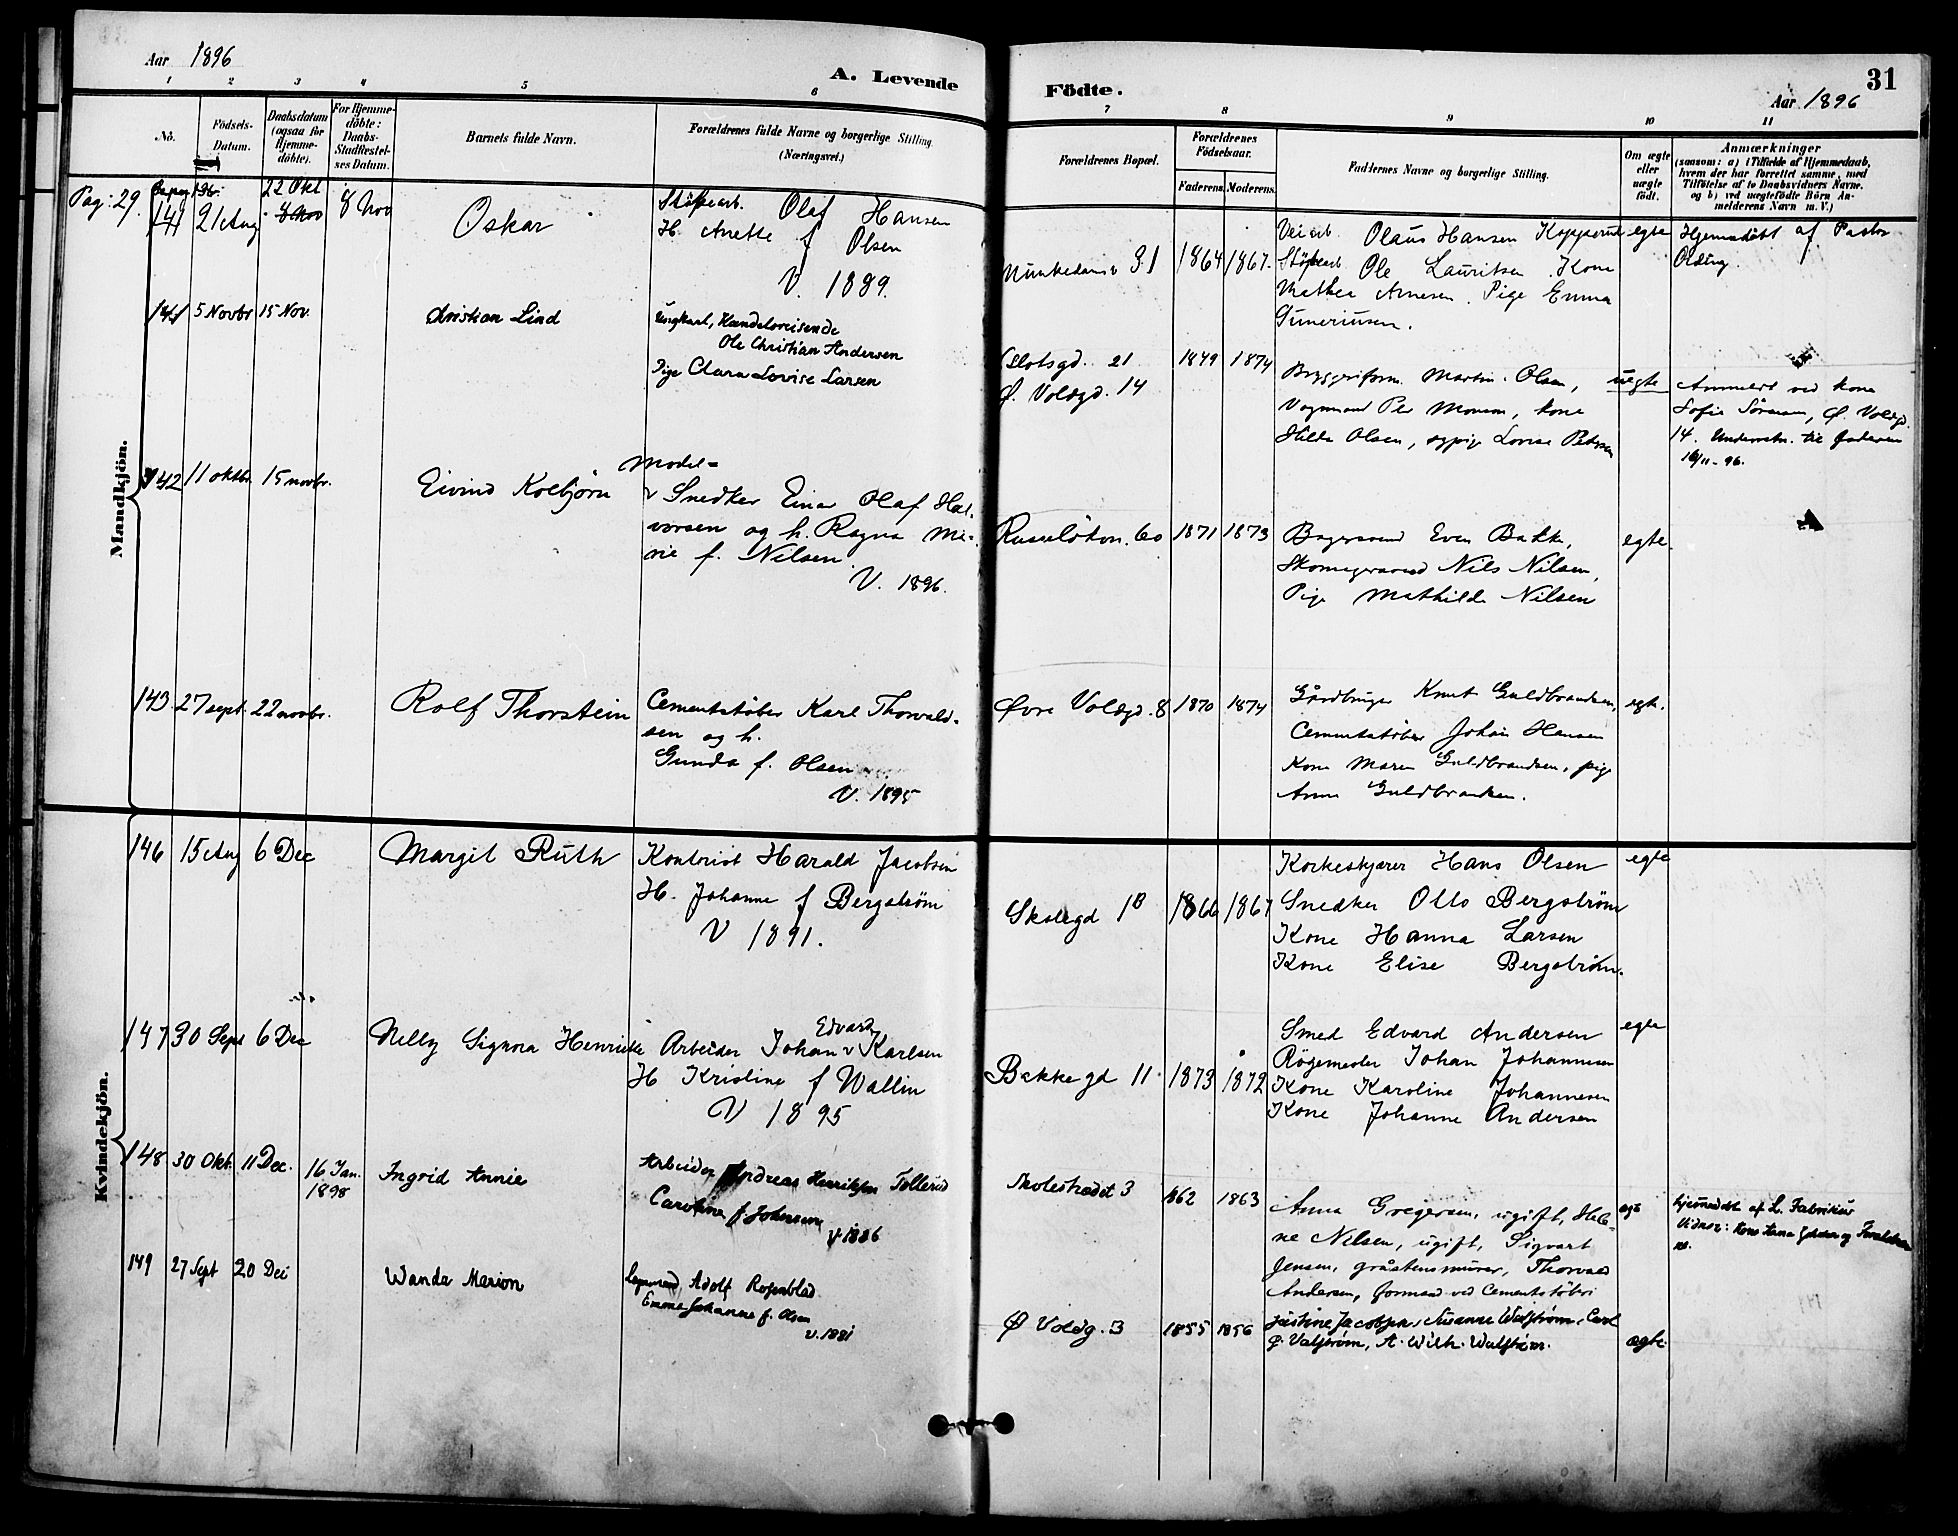 Aar 1896
A. Levende Födte.
31
Aar 1896
1 2 3 4 5 6 7 8 9 10 11
No.
Födsels-Datum.
Daabsdatum (ogsaa for Hjemmedöbte).
For Hjemmedöbte: Daabs-Stadfæstelses Datum.
Barnets fulde Navn.
Forældrenes fulde Navne og borgerlige Stilling. (Næringsvei.)
Forældrenes Bopæl.
Forældrenes Födselsaar.
Faderens. Moderens.
Faddernes Navne og borgerlige Stilling.
Om ægte eller uægte födt.
Anmærkninger
(saasom: a) i Tilfælde af Hjemmedaab, hvem der har forrettet samme, med Tilföielse af to Daabsvidners Navne, og b) ved uægtefödte Börn Anmelderens Navn m. V.)
Mandkjön.
Pag: 29.
141 21 Aug 22 Okt 8 Nov 8 Nov
Oskar
Olaf Hansen
H. Anette f Olsen
V. 1889.
31 1864 1867.
Veiarb. Olaus Hansen egte
Ole Lauritsen Kone
Mathea Arnesen. Pige Emma
Guneriusen.
Hjemmedöbt af Pastor
141 5 Novbr 15 Nov.
Christian Lind
Ungkarl, Handelsreisende
Ole Christian Andersen
Pige Clara Lovise Larsen
Slotsgd. 21 1849 1874
Ø. Voldgd. 14
Martin Olsen, uegte
Vognmand Per Monsen, kone
Hilda Olsen, sypige Lovise Petersen
Anmeldt ved kone
Sofie Sörensen, Ø. Voldgd.
14. Underretn. til faderen
16/11-96.
142 11 oktbr. 15 novbr.
Eivind Kolbjørn
Model-
Snedker Einar Olaf Hal-
vorsen og h. Ragna Ma-
rie f. Nilsen.
V. 1896.
60 1871 1873
Even Bakke, egte.
Skomagersvend Nils Nilsen,
Pige Mathilde Nilsen
143. 27 sept. 22 novbr.
Rolf Thorstein
Cementstøber Karl Thorvald-
sen og h.
Gunda f. Olsen
V. 1895
Øvre Voldgd. 8 1870 1874
Gårdbruger Knut Guldbrandsen, egte.
Cementstøber Johan Hansen
Kone Maren Guldbrandsen, pige
Anna Guldbrandsen.
Kvindekjön.
146 15 Aug 6 Dec
Margit Ruth
Kontorist Harald Jacobsen
H. Johanne f Bergstrøm
V 1891.
Skolegd 1B 1866 1867
Korkeskjærer Hans Olsen egte
Snedker Otto Bergstrøm
Kone Hanna Larsen
Kone Elise Bergstrøm.
147 30 Sept 6 Dec
Nelly Signora Henriette
Arbeider Johan Edvard Karlsen
H Kristine f Wallin
V 1895
Bakkegd 11. 1873 1872
Smed Edvard Andersen egte
Johan Johannesen
Kone Karoline Johannesen
Kone Johanne Andersen
148 30 Okt. 11 Dec. 16 Jan. 1898
Ingrid Annie
Arbeider Andreas Henriksen Tollerud
Caroline f. Johansen
V 1886
3 1862 1863
Anna Gregersen, ugift, Hele-
ne Nilsen, ugift, Sigvart
Jensen, gråstensmurer, Thorvald
Andersen, formand ved Cementstøberi
hjemmedøbt af L. Fabritius
149 27 Sept 20 Dec
Wanda Marion
Adolf Rosenblad
Emma Johanne f. Olsen
V. 1881
Ø Voldg. 3 1855 1856
Justine Jacobsen, Susanne Walstrøm, Carl
G. Valstrøm, A. Wilh. Walstrøm. ægte.